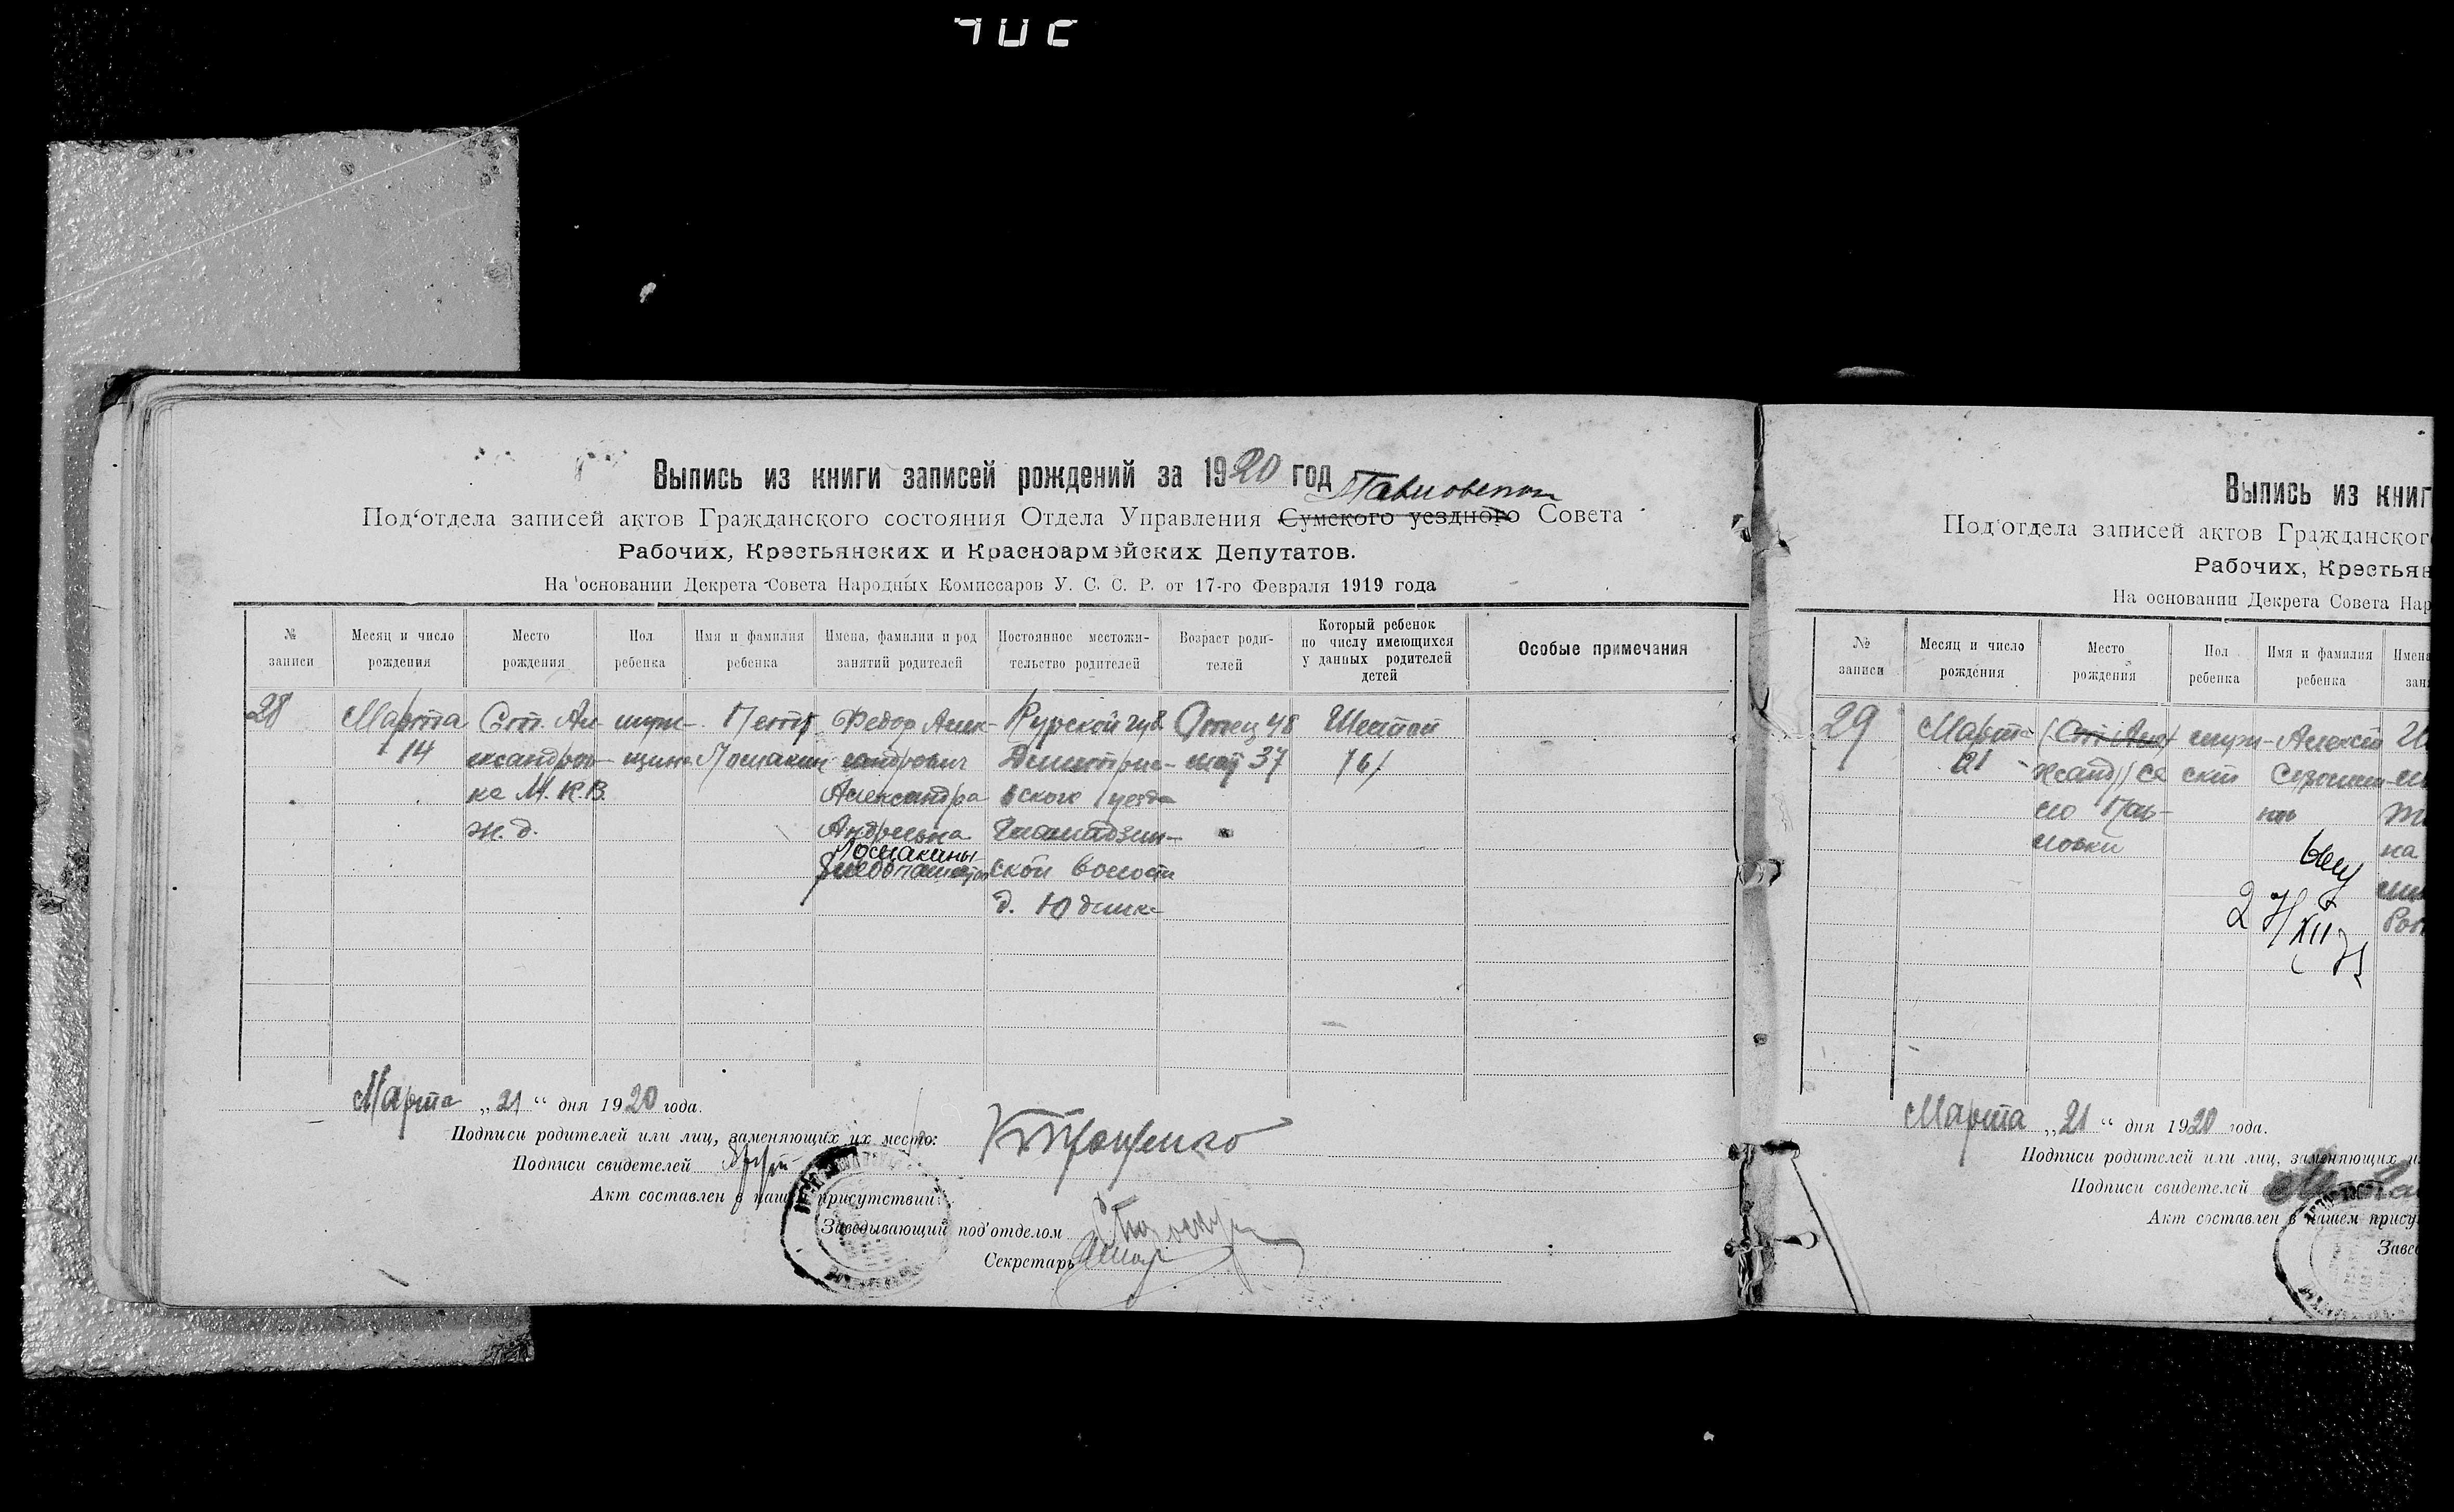 Выпись из книги записей рождений за 1920 год
Под'отдела записей актов Гражданского состояния Отдела Управления Сумского уездного Совета
Рабочих, Крестьянских и Красноармейских Депутатов.
На основании Декрета Совета Народных Комиссаров У. С. С. Р. от 17-го Февраля 1919 года
№ записи
Месяц и число рождения
Место рождения
Пол ребенка
Имя и фамилия ребенка
Имена, фамилии и род занятий родителей
Постоянное местожи-
тельство родителей
Возраст роди-
телей
Который ребенок
по числу имеющихся
у данных родителей
детей
Особые примечания
28
Марта
14
Ст. Ал
ександров-
ка М.К.В.
ж.д.
муж-
Петр
Федор Алек-
сандрович
Александра
Андреевна
Курской губ
Дмитрие-
вского уезда
ской волости
д. Юдинка
Отец 48
мат 37
Шестой
/6/
Марта „21“ дня 1920 года.
Подписи родителей или лиц, заменяющих их место:
Подписи свидетелей
Акт составлен в нашем присутствии:
Заведывающий под'отделом
Секретарь
Выпись из книг
Под'отдела записей актов Гражданског
Рабочих, Крестьян
На основании Декрета Совета Нар
№ записи
Месяц и число рождения
Место рождения
Пол ребенка
Имя и фамилия ребенка
Имена
зан
29
Марта
21
(Ст. Алек
ксанд) Се
ло Пав-
ловки
муж-
ской
Алексей
на
27/XII
Марта „21“ дня 1920 года.
Подписи родителей или лиц, заменяющих и
Подписи свидетелей
Акт составлен в нашем прису
Заве